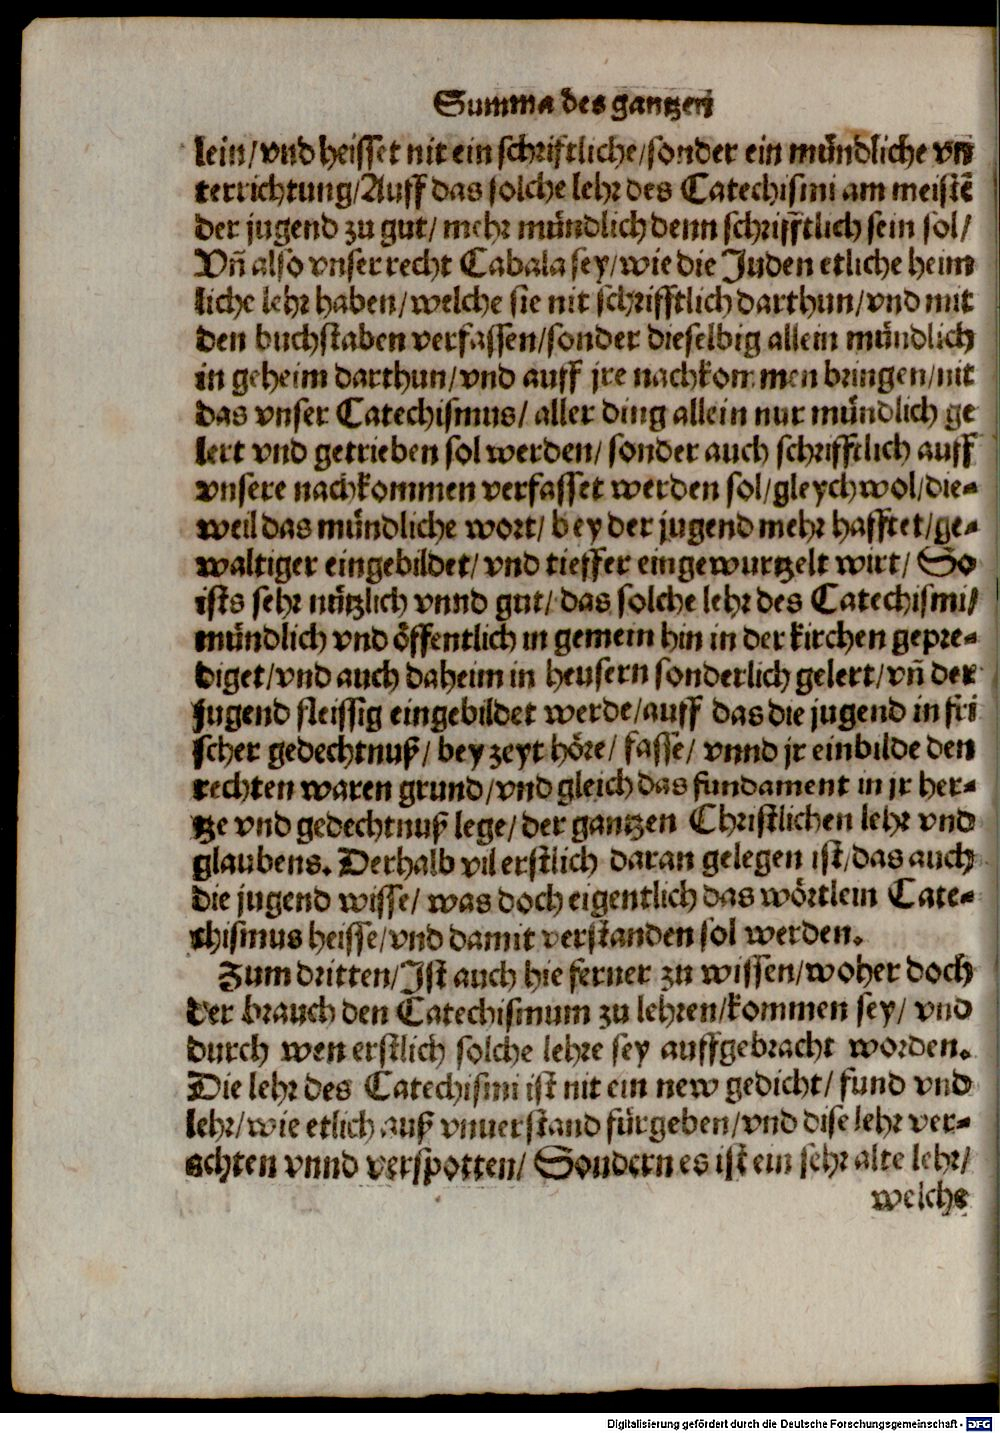 Summa des gantzen
lein/vnd heisset nit ein schrifftliche/sonder ein mündliche vn
terrichtung/Auff das solche lehr des Catechismi am meistẽ
der jugend zu gut/ mehr mündlich denn schrifftlich sein sol/
Vñ also vnser recht Cabala sey/wie die Juden etliche heim
liche lehr haben/welche sie nit schrifftlich darthun/vnd mit
den buchstaben verfassen/sonder dieselbig allein mündlich
in geheim darthun/vnd auff jre nachkommen bringen/nit
das vnser Catechismus/ aller ding allein nur mündlich ge
lert vnd getrieben sol werden/ sonder auch schrifftlich auff
vnsere nachkommen verfasset werden sol/gleychwol/die-
weil das mündliche wort/ bey der jugend mehr hafftet/ge-
waltiger eingebildet/ vnd tieffer eingewurtzelt wirt/ So
ists sehr nützlich vnnd gut/ das solche lehr des Catechismi/
mündlich vnd öffentlich in gemein hin in der kirchen gepre-
diget/vnd auch daheim in heusern sonderlich gelert/vñ der
jugend fleissig eingebildet werde/auff das die jugend in fri
scher gedechtnuß/ bey zeyt höre/ fasse/ vnnd jr einbilde den
rechten waren grund/vnd gleich das fundament in jr her-
tze vnd gedechtnuß lege/der gantzen Christlichen lehr vnd
glaubens. Derhalb vil erstlich daran gelegen ist/das auch
die jugend wisse/ was doch eigentlich das wörtlein Cate-
chismus heisse/vnd damit verstanden sol werden.
Zum dritten/Ist auch hie ferner zu wissen/woher doch
der brauch den Catechismum zu lehren/kommen sey/ vnd
durch wen erstlich solche lehre sey auffgebracht worden.
Die lehr des Catechismi ist nit ein new gedicht/ fund vnd
lehr/wie etlich auß vnuerstand fürgeben/vnd dise lehr ver-
achten vnnd verspotten/ Sondern es ist ein sehr alte lehr/
welche
Digitalisierung gefördert durch die Deutsche Forschungsgemeinschaft - DFG